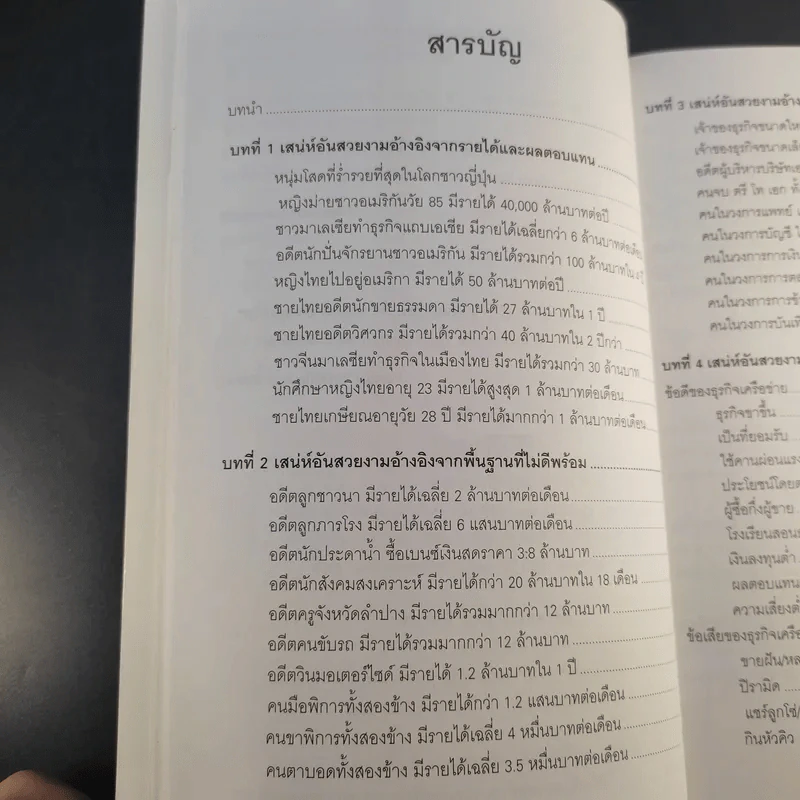 สารบัญ
บทนำ
บทที่ 1 เสน่ห์อันสวยงามอ้างอิงจากรายได้และผลตอบแทน
หนุ่มโสดที่ร่ำรวยที่สุดในโลกชาวญี่ปุ่น
หญิงม่ายชาวอเมริกันวัย 85 มีรายได้ 40,000 ล้านบาทต่อปี
ชาวมาเลเซียทำธุรกิจแถบเอเชีย มีรายได้เฉลี่ยกว่า 6 ล้านบาทต่อเดือน
อดีตนักปั่นจักรยานชาวอเมริกัน มีรายได้รวมกว่า 100 ล้านบาทใน
หญิงไทยไปอยู่อเมริกา มีรายได้ 50 ล้านบาทต่อปี
ชายไทยอดีตนักขายธรรมดา มีรายได้ 27 ล้านบาทใน 1 ปี
ชายไทยอดีตวิศวกร มีรายได้รวมกว่า 40 ล้านบาทใน 2 ปีกว่า
ชาวจีนมาเลเซียทำธุรกิจในเมืองไทย มีรายได้รวมกว่า 30 ล้านบาท
นักศึกษาหญิงไทยอายุ 23 มีรายได้สูงสุด 1 ล้านบาทต่อเดือน
ชายไทยเกษียณอายุวัย 28 ปี มีรายได้มากกว่า 1 ล้านบาทต่อเดือน
บทที่ 2 เสน่ห์อันสวยงามอ้างอิงจากพื้นฐานที่ไม่ดีพร้อม
อดีตลูกชาวนา มีรายได้เฉลี่ย 2 ล้านบาทต่อเดือน
อดีตลูกภารโรง มีรายได้เฉลี่ย 6 แสนบาทต่อเดือน
อดีตนักประดาน้ำ ซื้อเบนซ์เงินสดราคา 3:8 ล้านบาท
อดีตนักสังคมสงเคราะห์ มีรายได้กว่า 20 ล้านบาทใน 18 เดือน
อดีตครูจังหวัดลำปาง มีรายได้รวมมากกว่า 12 ล้านบาท
อดีตคนขับรถ มีรายได้รวมมากกว่า 12 ล้านบาท
อดีตวินมอเตอร์ไซด์ มีรายได้ 1.2 ล้านบาทใน 1 ปี
คนมือพิการทั้งสองข้าง มีรายได้กว่า 1.2 แสนบาทต่อเดือน
คนขาพิการทั้งสองข้าง มีรายได้เฉลี่ย 4 หมื่นบาทต่อเดือน
คนตาบอดทั้งสองข้าง มีรายได้เฉลี่ย 3.5 หมื่นบาทต่อเดือน
บทที่ 3 เสน่ห์อันสวยงามอ้าง
เจ้าของธุรกิจขนาดให
เจ้าของธุรกิจขนาดเล็
อดีตผู้บริหารบริษัทเอ
คนจบ ตรี โท เอก ทั้
คนในวงการแพทย์
คนในวงการบัญชี
คนในวงการการเงิน
คนในวงการการต
คนในวงการการข้
คนในวงการบันเทิ
บทที่ 4 เสน่ห์อันสวยงาม
ข้อดีของธุรกิจเครือข่าย
ธุรกิจขาขึ้น
เป็นที่ยอมรับ
ใช้คานผ่อนแรง
ประโยชน์โดยต
ผู้ซื้อกึ่งผู้ขาย
โรงเรียนสอน
เงินลงทุนต่ำ
ผลตอบแทน
ความเสี่ยงต่ำ
ข้อเสียของธุรกิจเครือ
ขายฝัน/หล
ปิรามิด
แชร์ลูกโซ่/
กินหัวคิว